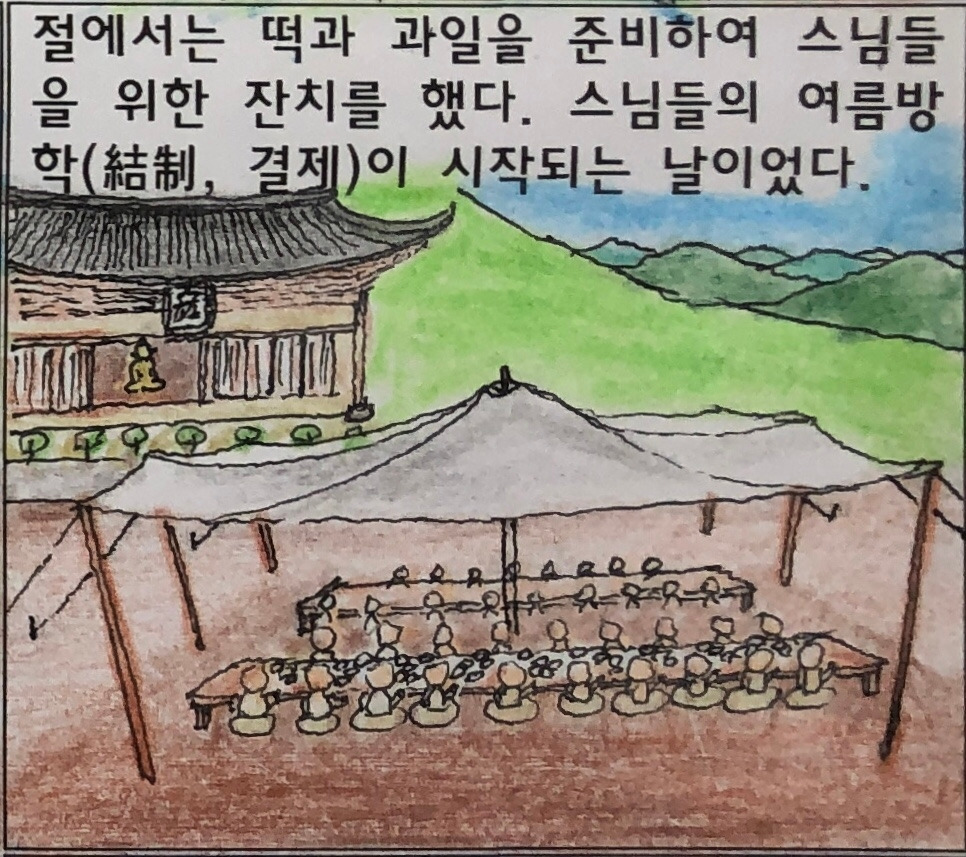 절에서는 떡과 과일을 준비하여 스님들
을 위한 잔치를 했다. 스님들의 여름방
학(結制, 결제)이 시작되는 날이었다.